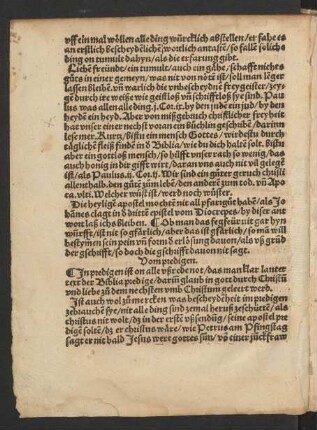 vff ein mal wöllen alle ding würcklich abstellen / er fahe es
an erstlich bescheydēlichē / wortlich antastē / so falle solich
ding on tumult dahyn / als die erfarung gibt.
Lieben freündt / ein tumult / auch ein gähe / schafft niehe
güts in einer gemeyn / was nit von nöte ist / soll man leger
lassen bleibē. vn̄ warlich die vnbescheydnē freygeister / zey-
gē durch ire weiß wie geistloß vn̄ schifftloß sye sind. Pau
lus was allen alle ding. j. Cor. ix. by den jude ein jud / by den
heydē ein heyd. Aber von mißgebruch chistlicher freyheit
hat vnser einer nechst voran ein büchlin geschribē / darinn
lesemer. Kurtz / Bistu ein mensch Gottes / wirdestu durch
tägliche fleiß findē in d Biblia / wie du dich haltē solt. Bistu
aber ein gottloß mensch / so hilfft vnser rath so wenig / das
auch honig in dir gifft wirt / daran vns auch nit vil gelegē
ist / als Paulus. ij. Cor. ij. Wir sind ein güter geruch chisti
allenthalb. den gūtē zum lebē / den anderē zum tod. vn̄ Apo
ca. vlti. Welcher wüst ist / werd noch wüster.
Die heylige apostel mochten nit all pfargūt habē / als Jo
hānes clagt in d dritte epistel vom Diotrepes / by diser ant
wort laß ichs bleiben. ¶ Ob man das fegfeür nit gar hyn
würfft / ist nit so gfärlich / aber das ist gfärlich / so mā will
bestym̄en sein pein vn̄ form d erlösung dauon / als vß grūd
der gschrifft / so doch die gschrifft dauon nit sagt.
Vom predigen.
¶ In predigen ist on alle vßrede not / das man klar lauter
text der Biblia predige / darin̄ glaub in gott durch Chistū
vnd liebe zū dem nechsten vmb Chistum gelert werd.
Ist auch wol zū mercken was bescheydeheit im predigen
zebrauchē sye / nit alle ding sind zemal heruß zeschüttē / als
chistus nit wolt / dz in der erste vßsendūg / seine apostel pre
digē soltē / dz er chistus wäre / wie Petrus am Pfingstag
sagt er nit bald Jesus were gottes sun / vō einer jūckfraw